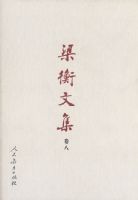 梁衡文集
卷八
人民教育出版社